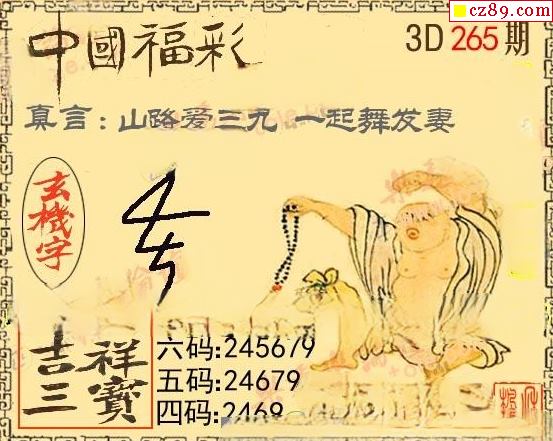 cz89.com
中國福彩
3D 265期
真言：山路爱三九 一起舞发妻
玄機字
吉祥三寶
六码:245679
五码:24679
四码:2469